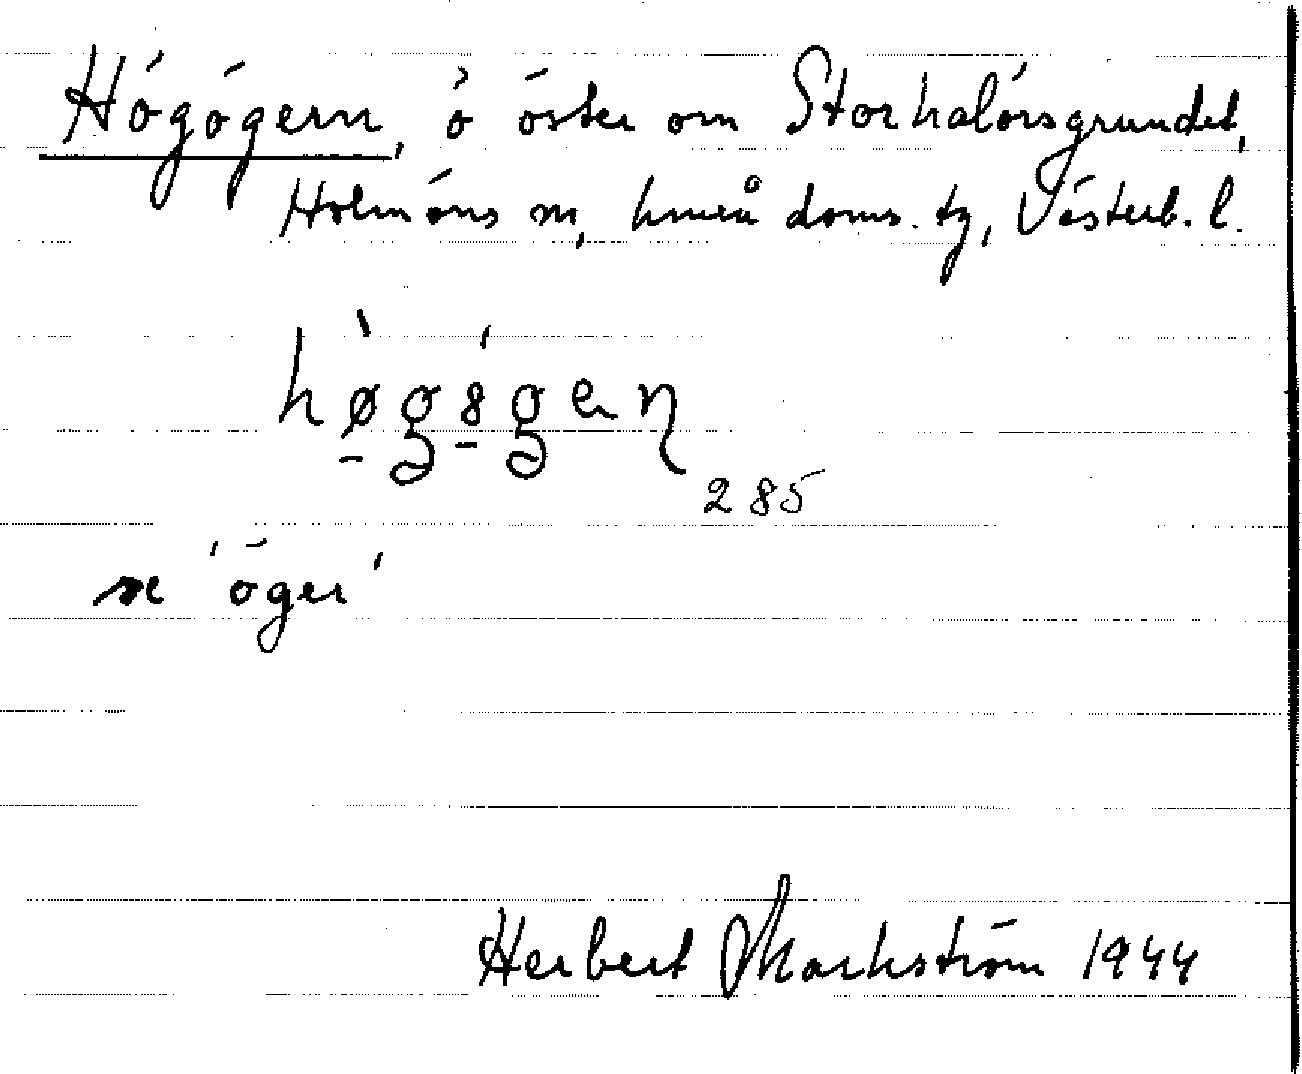 Högögern, ö öster om Storhalörsgrundet,
Holmöns sn, Umeå doms. tg, Västerb. l.
høgögern
285
se 'öger'
Herbert Markström 1944